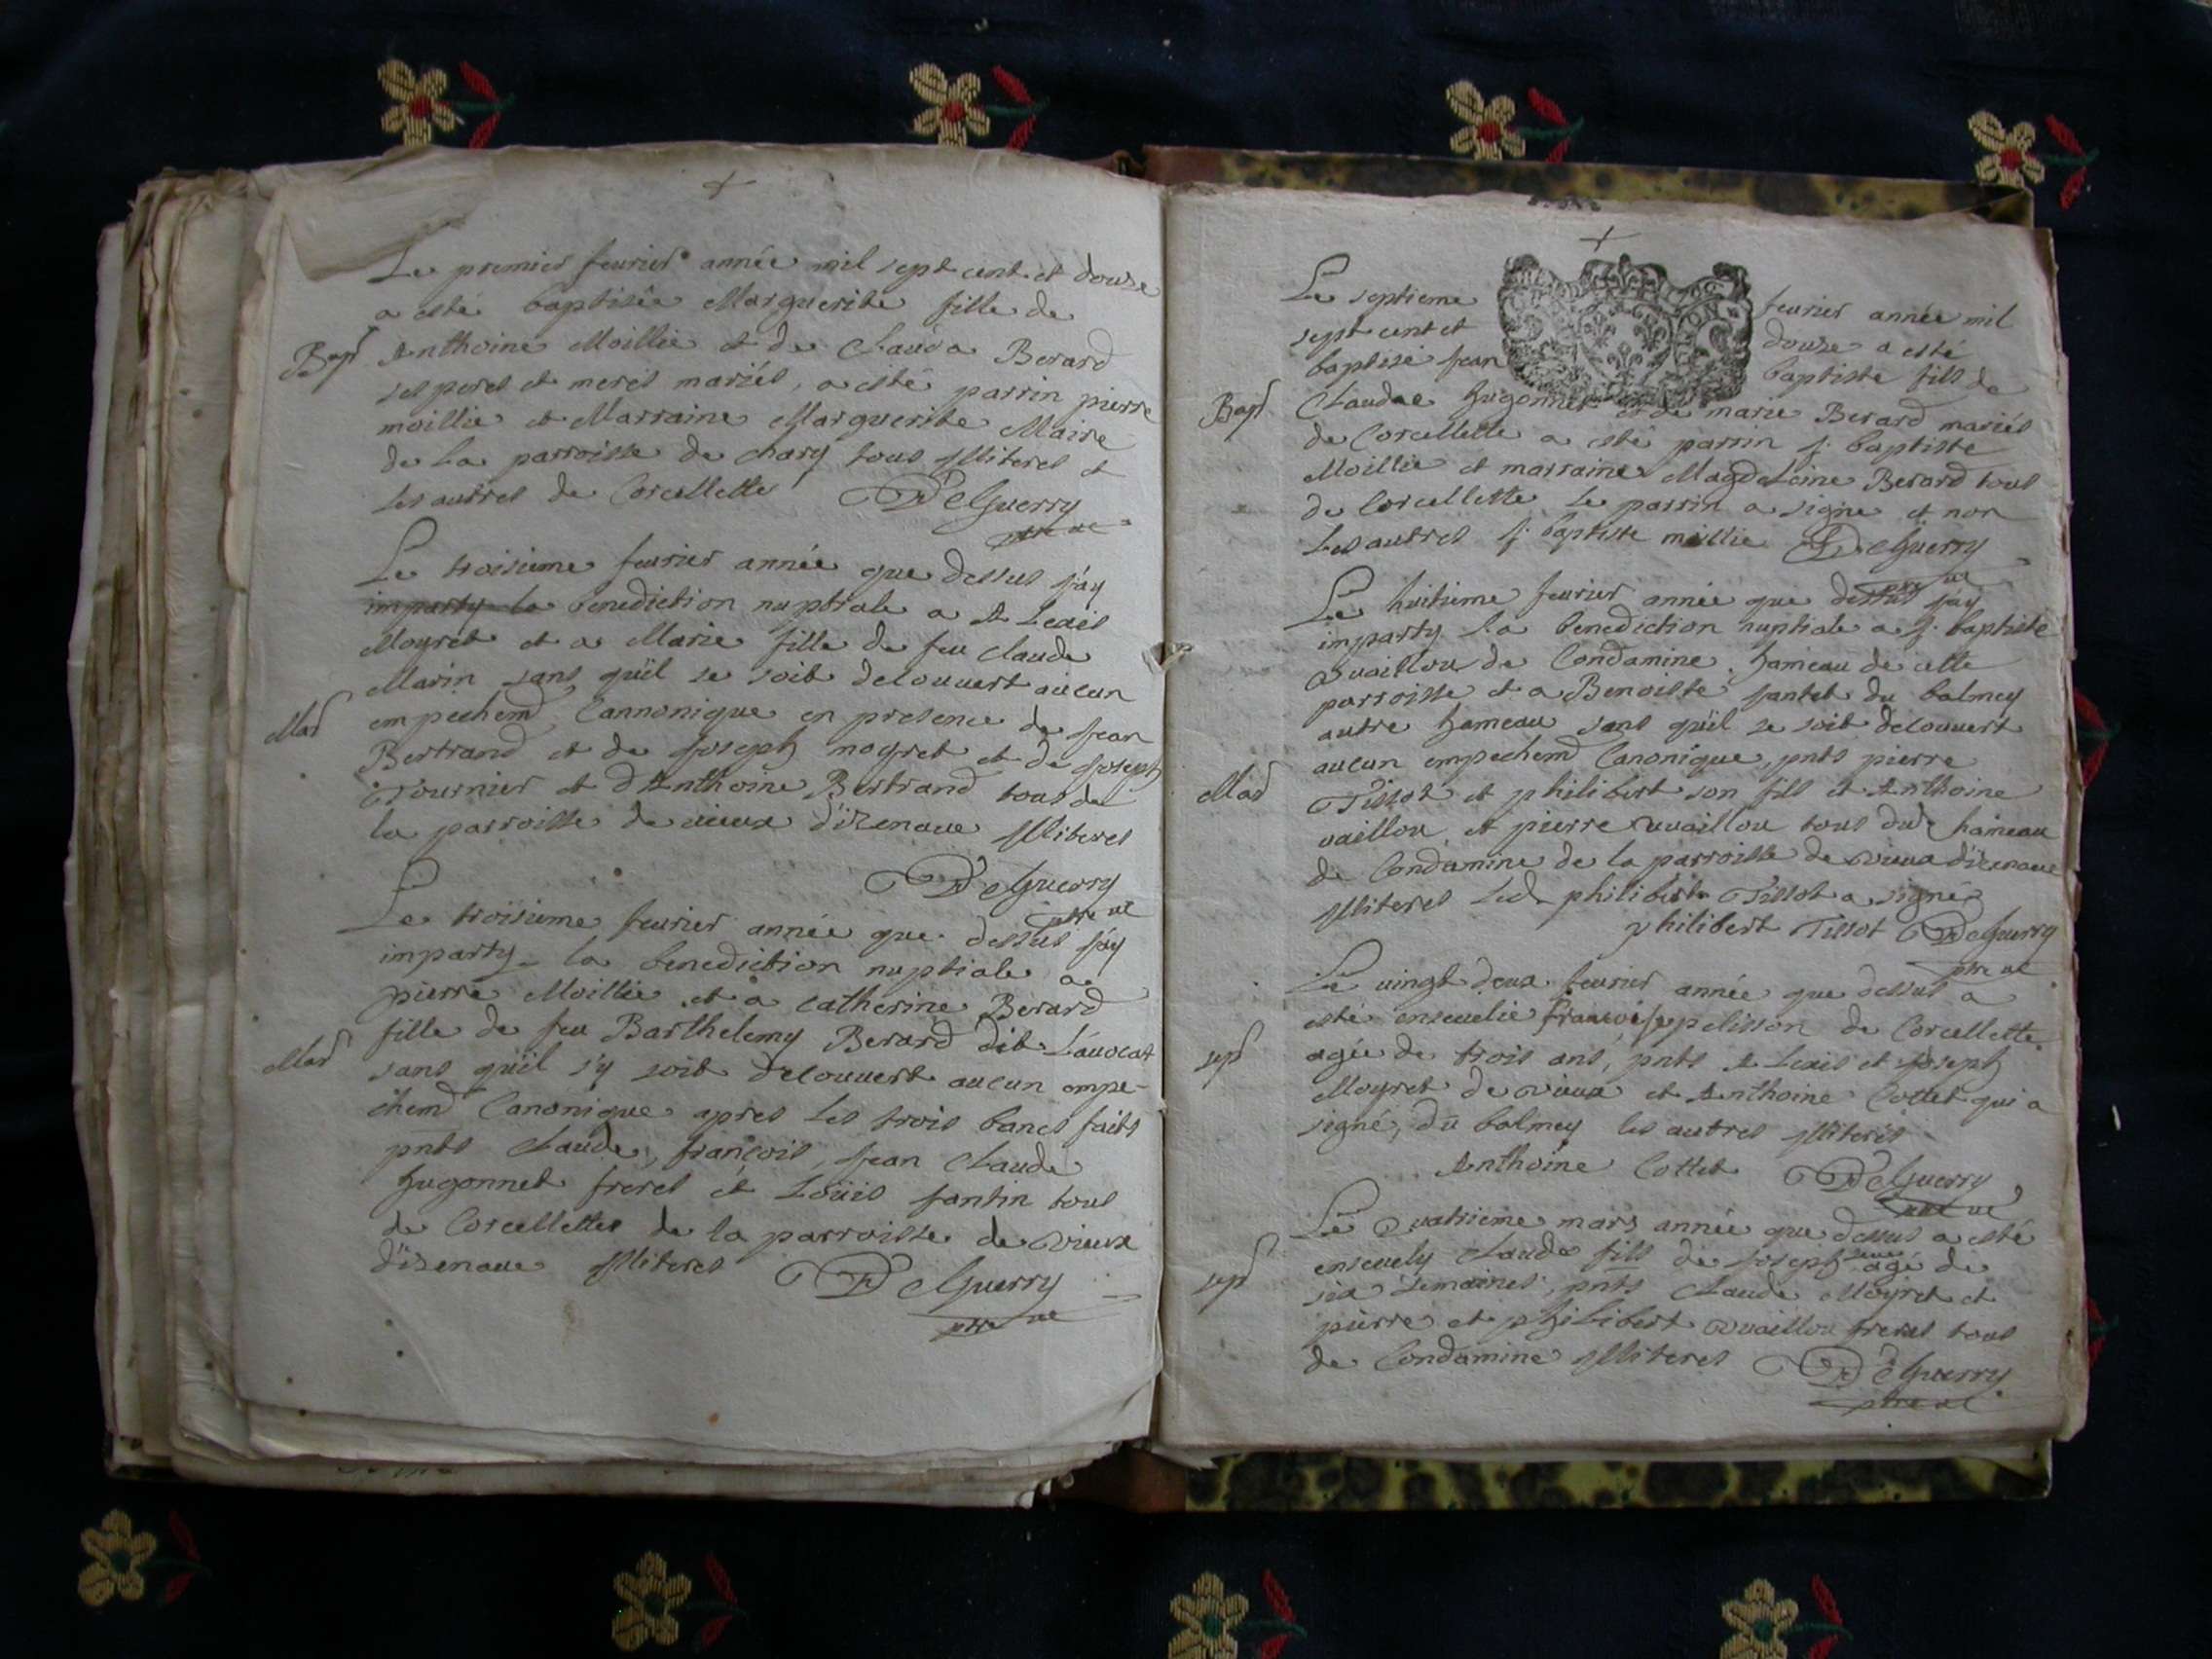 Le premier feurier année mil sept cent et douze
a esté baptisée Marguerite fille de
Bapt Anthoine Moillie et de Clauda Berard
ses peres et meres mariés, a esté parrin pierre
moillie et Marraine Marguerite Maire
de la parroisse de chary tous illiteres et
les autres de Corcellette DeGuerry
ptre
Le troisieme feurier année que dessus j'ay
imparty la benediction nuptiale a
Moyret et a Marie fille de feu claude
Marin sans qu'il se soit decouuert aucun
Mar empechemt Cannonique en presence de jean
Bertrand et de joseph moyret et de joseph
Tournier et d'Anthoine Bertrand tous de
la parroisse de vieux d'izenaue illiteres
DeGuerry
ptre
Le troisieme feurier année que dessus j'ay
imparty la benediction nuptiale a
pierre Moillie et a catherine Berard
fille de feu Barthelemy Berard dit L'auocat
Mar sans qu'il s'y soit decouuert aucun empe-
chemt Canonique apres les trois bancs faits
pnts claude, françois, jean claude
hugonnet freres et Loüis jantin tous
de Corcellettes de la parroisse de vieux
d'izenaue illiteres DeGuerry
ptre
Le septieme feurier année mil
sept cent et douze a esté
baptisé jean baptiste fils de
Bapt Claude hugonnet et de marie Berard mariés
de Corcellette a esté parrin j. baptiste
Moillie et marraine Magdeleine Berard tous
de Corcellette le parrin a signe et non
les autres j. baptiste millie DeGuerry
ptre
Le huitieme feurier année que dessus j'ay
imparty la benediction nuptiale a j. baptiste
Vuaillou de Condamine hameau de cette
parroisse et a Benoiste jantet du balmey
autre hameau sans qu'il se soit decouuert
aucun empechemt Canonique, pnts pierre
Mar Tissot et philibert son fils et Anthoine
vaillou et pierre vuaillou tous dud hameau
de Condamine de la parroisse de vieux d'izenaue
illiteres Led philibert Tissot a signé
philibert Tissot DeGuerry
ptre
Le vingt deux feurier année que dessus a
esté enseuelie françoise pelisson de Corcellette
sep agée de trois ans, pnts et joseph
Moyret de vieux et Anthoine Cottet qui a
signé, du balmey les autres illiterés
Anthoine Cottet DeGuerry
ptre
Le quatrieme mars année que dessus a esté
enseuely claude fils de joseph agé de
sep six semaines, pnts claude Moyret et
pierre et philibert vuaillou freres tous
de Condamine illiteres DeGuerry
ptre